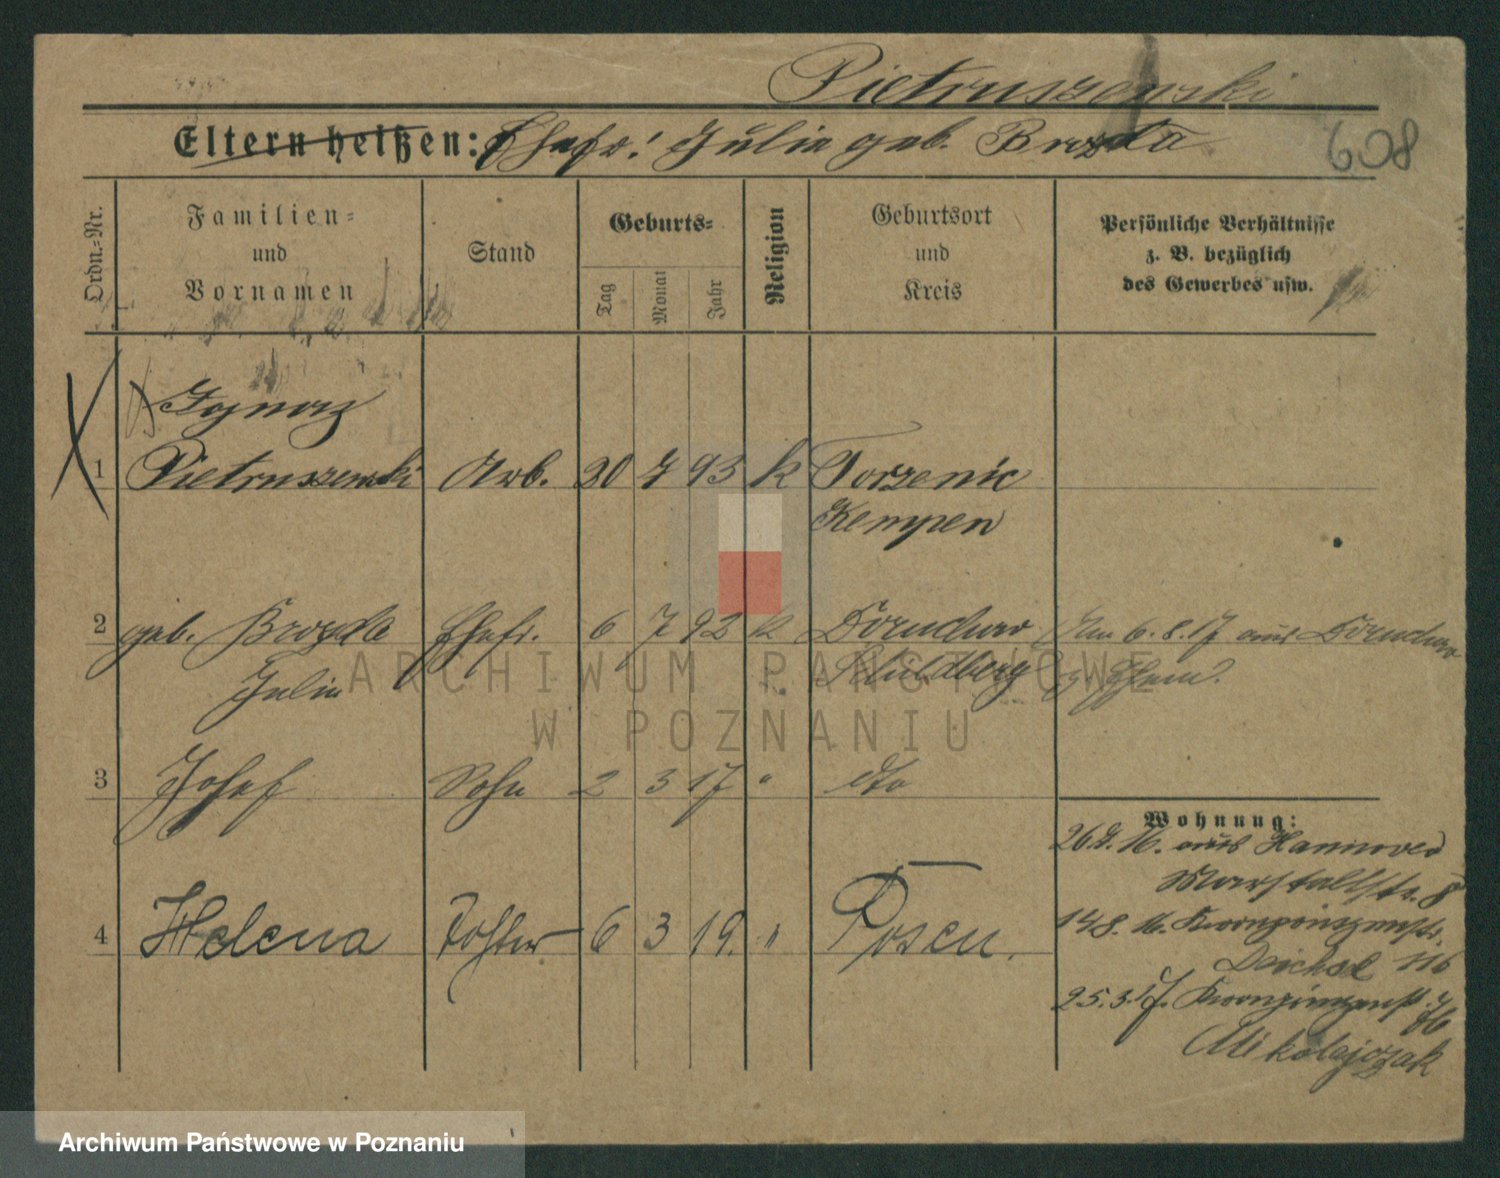 Pietruszewski
Eltern heißen: Ehefr! Julia geb. Brozda
608
Ordn.-Nr.
Familien-
und
Vornamen
Stand
Geburts-
Tag
Monat
Jahr
Religion
Geburtsort
und
Kreis
Persönliche Verhältnisse
z. B. bezüglich
des Gewerbes usw.
Ignaz
1 Pietruszewski Arb. 20 7 93 k Torzenic
Kempen
2 geb. Brozda Ehefr. 6 7 92 k Doruchow Am 6.8.17 aus Doruchow
Julia Schildberg z. Ehem.
3 Josef Sohn 2 3 17 " dto
Wohnung:
26.7.16. aus Hannover
Marstallstr. 8
4 Helena Tochter 6 3 19. " Posen.
14.8.16. Kronprinzenstr.
Deichsel 116
25.3.17. Kronprinzenst.
Mikolajczak
ARCHIWUM PAŃSTWOWE
W POZNANIU
Archiwum Państwowe w Poznaniu